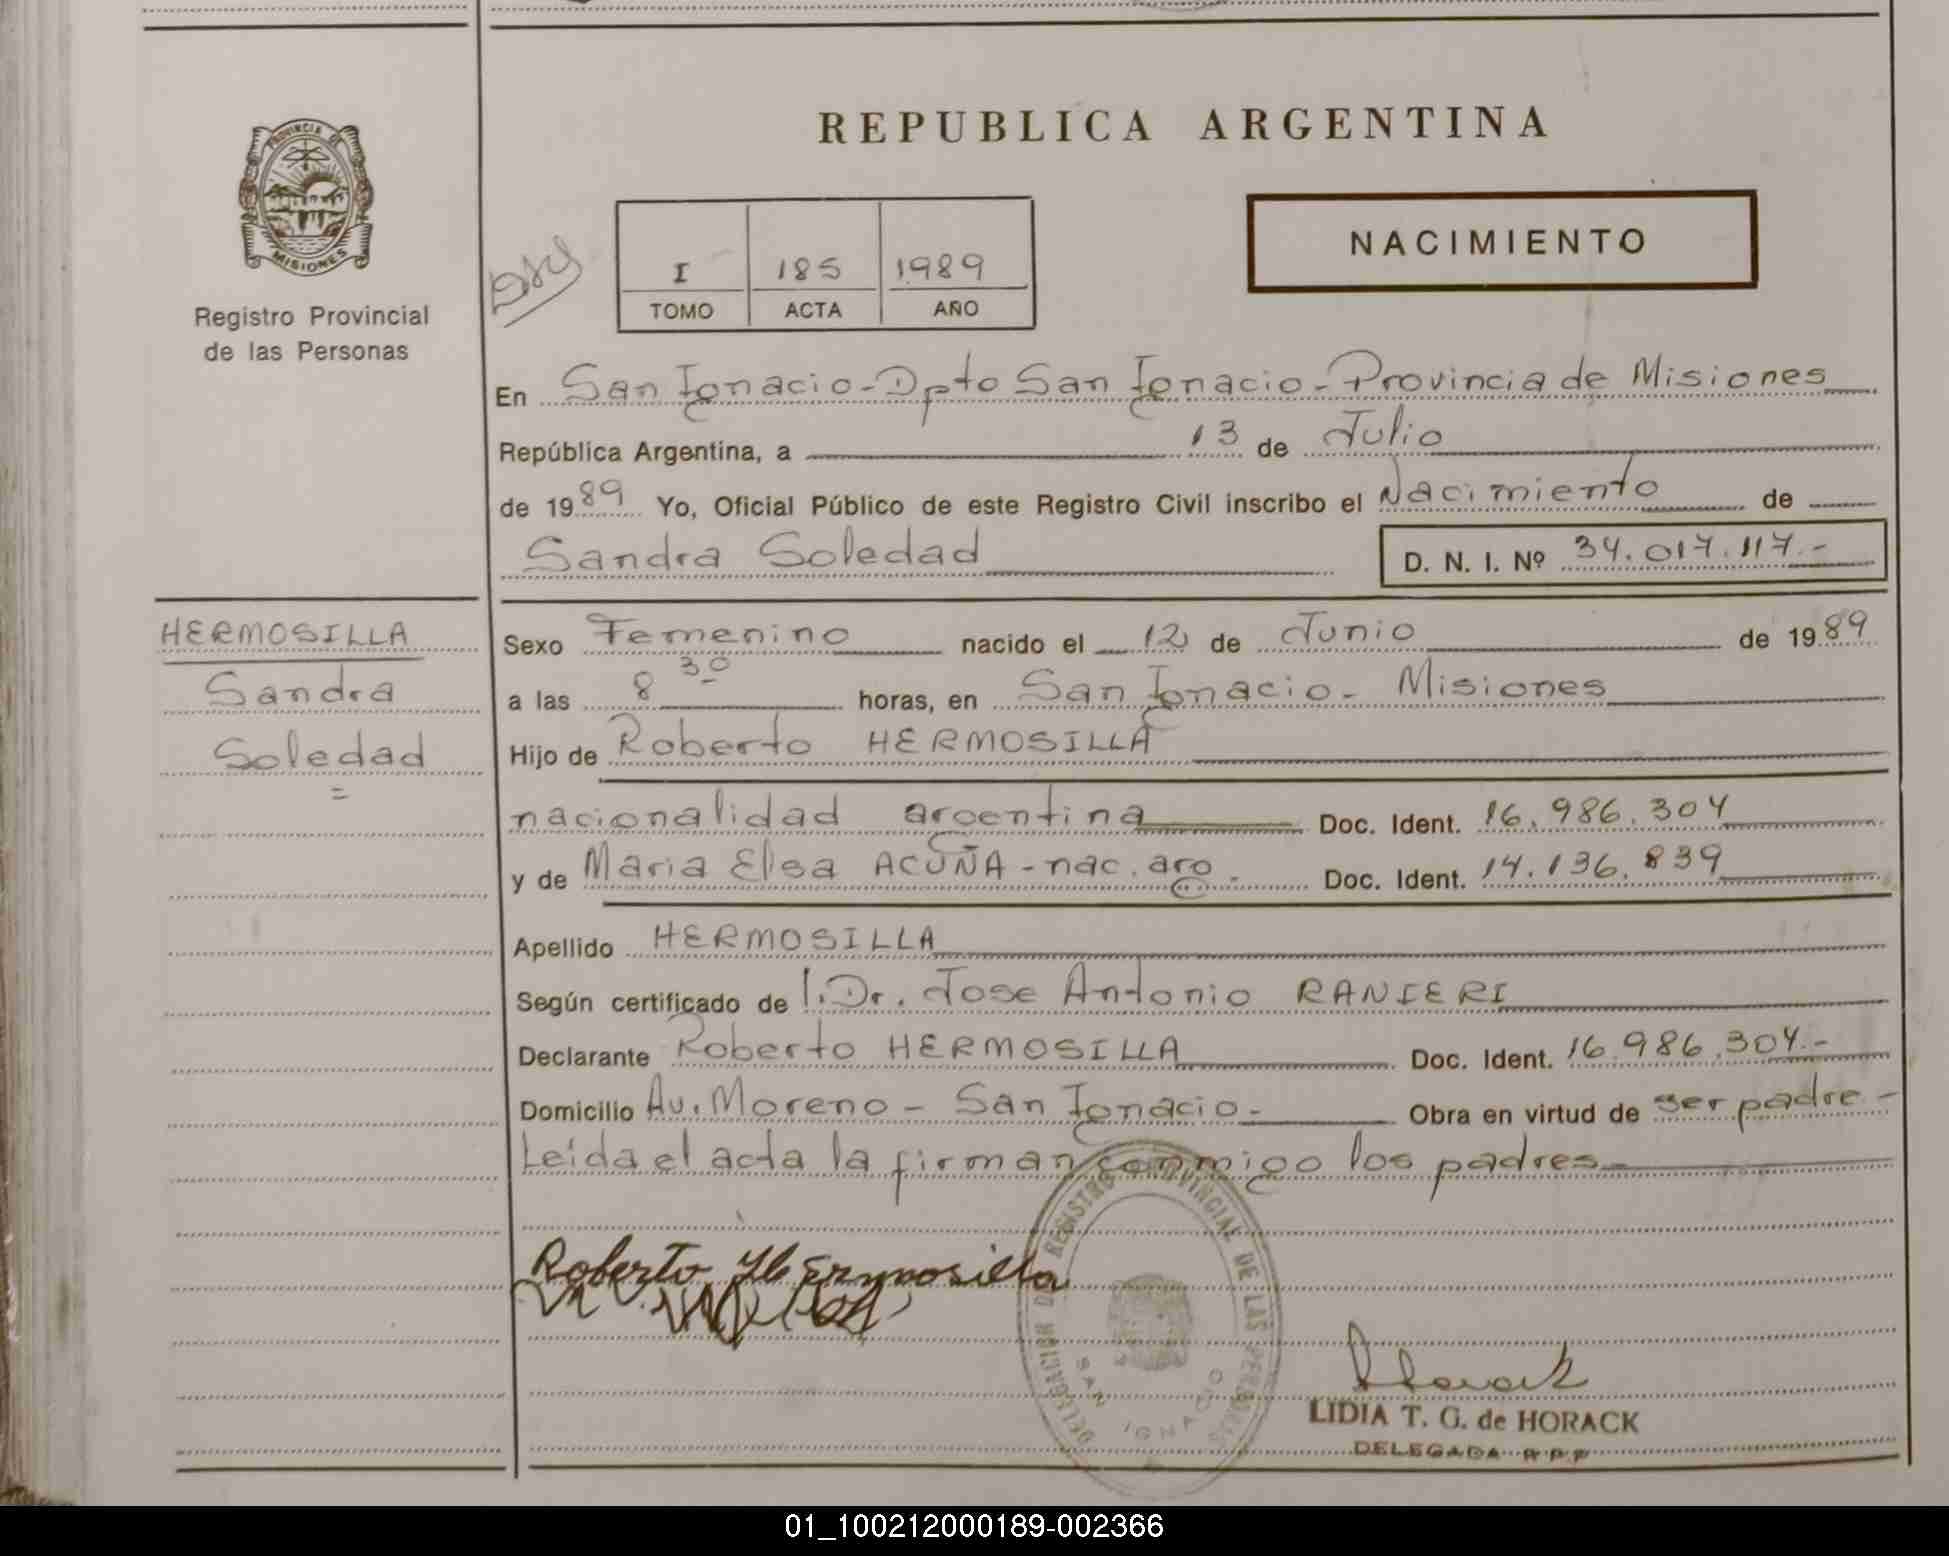 REPUBLICA ARGENTINA
PROVINCIA DE
MISIONES
Registro Provincial
de las Personas
NACIMIENTO
I 185 1989
TOMO ACTA AÑO
En San Ignacio - Dpto San Ignacio - Provincia de Misiones
República Argentina, a 13 de Julio
de 1989 Yo, Oficial Público de este Registro Civil inscribo el Nacimiento de
Sandra Soledad D. N. I. Nº 34.017.117.-
HERMOSILLA
Sandra
Soledad
=
Sexo Femenino nacido el 12 de Junio de 1989
a las 8 30 horas, en San Ignacio - Misiones
Hijo de Roberto HERMOSILLA
nacionalidad argentina Doc. Ident. 16.986.304
y de Maria Elsa ACUÑA - nac. arg. Doc. Ident. 14.136.839
Apellido HERMOSILLA
Según certificado de l. Dr. Jose Antonio RANIERI
Declarante Roberto HERMOSILLA Doc. Ident. 16.986.304.-
Domicilio Av. Moreno - San Ignacio - Obra en virtud de ser padre -
Leida el acta la firman conmigo los padres
Roberto Hermosilla
DELEGACION DE REGISTRO PROVINCIAL DE LAS PERSONAS
SAN IGNACIO
Horack
LIDIA T. G. de HORACK
DELEGADA R.P.P
01_100212000189-002366